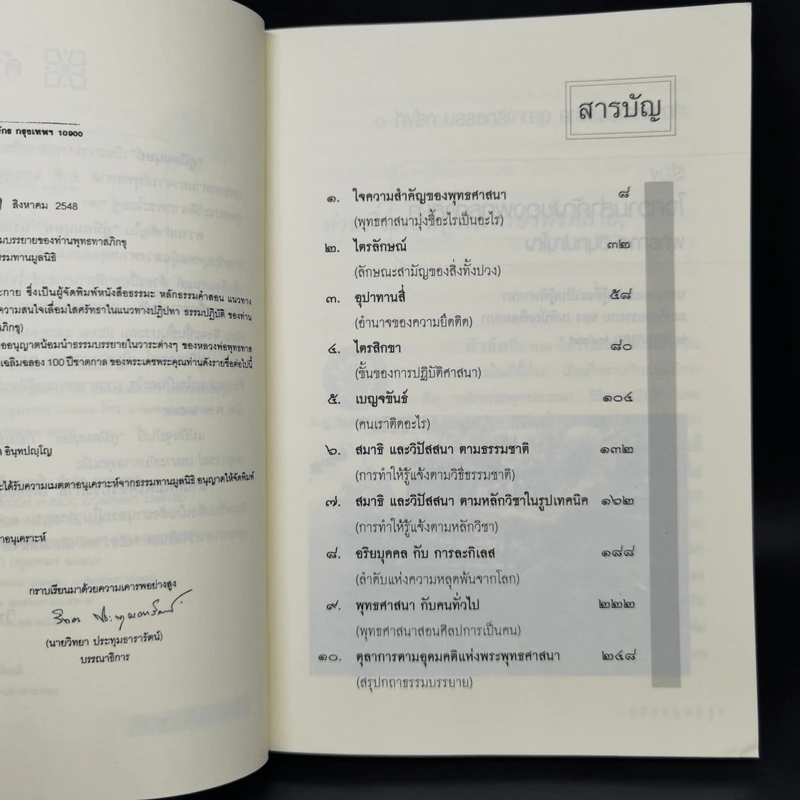 กรุงเทพฯ 10900
สิงหาคม 2548
บรรยายของท่านพุทธทาสภิกขุ
ธรรมทานมูลนิธิ
ซึ่งเป็นผู้จัดพิมพ์หนังสือธรรมะ หลักธรรมคำสอน แนวทาง
ความสนใจเลื่อมใสศรัทธาในแนวทางปฏิปทา ธรรมปฏิบัติ ของท่าน
ภิกขุ)
ขออนุญาตน้อมนำธรรมบรรยายในวาระต่างๆ ของหลวงพ่อพุทธทาส
เฉลิมฉลอง 100 ปีชาตกาล ของพระเดชพระคุณท่านดังรายชื่อต่อไปนี้
อินฺทปญฺโญ
ได้รับความเมตตาอนุเคราะห์จากธรรมทานมูลนิธิ อนุญาตให้จัดพิมพ์
อนุเคราะห์
กราบเรียนมาด้วยความเคารพอย่างสูง
(นายวิทยา ประทุมธารารัตน์)
บรรณาธิการ
สารบัญ
๑. ใจความสำคัญของพุทธศาสนา ๘
(พุทธศาสนามุ่งชี้อะไรเป็นอะไร)
๒. ไตรลักษณ์ ๓๒
(ลักษณะสามัญของสิ่งทั้งปวง)
๓. อุปาทานสี่ ๕๘
(อำนาจของความยึดติด)
๔. ไตรสิกขา ๘๐
(ขั้นของการปฏิบัติศาสนา)
๕. เบญจขันธ์ ๑๐๔
(คนเราติดอะไร)
๖. สมาธิ และวิปัสสนา ตามธรรมชาติ ๑๓๒
(การทำให้รู้แจ้งตามวิธีธรรมชาติ)
๗. สมาธิ และวิปัสสนา ตามหลักวิชาในรูปเทคนิค ๑๖๒
(การทำให้รู้แจ้งตามหลักวิชา)
๘. อริยบุคคล กับ การละกิเลส ๑๘๘
(ลำดับแห่งความหลุดพ้นจากโลก)
๙. พุทธศาสนา กับคนทั่วไป ๒๒๒
(พุทธศาสนาสอนศิลปการเป็นคน)
๑๐. ตุลาการตามอุดมคติแห่งพระพุทธศาสนา ๒๔๘
(สรุปกถาธรรมบรรยาย)